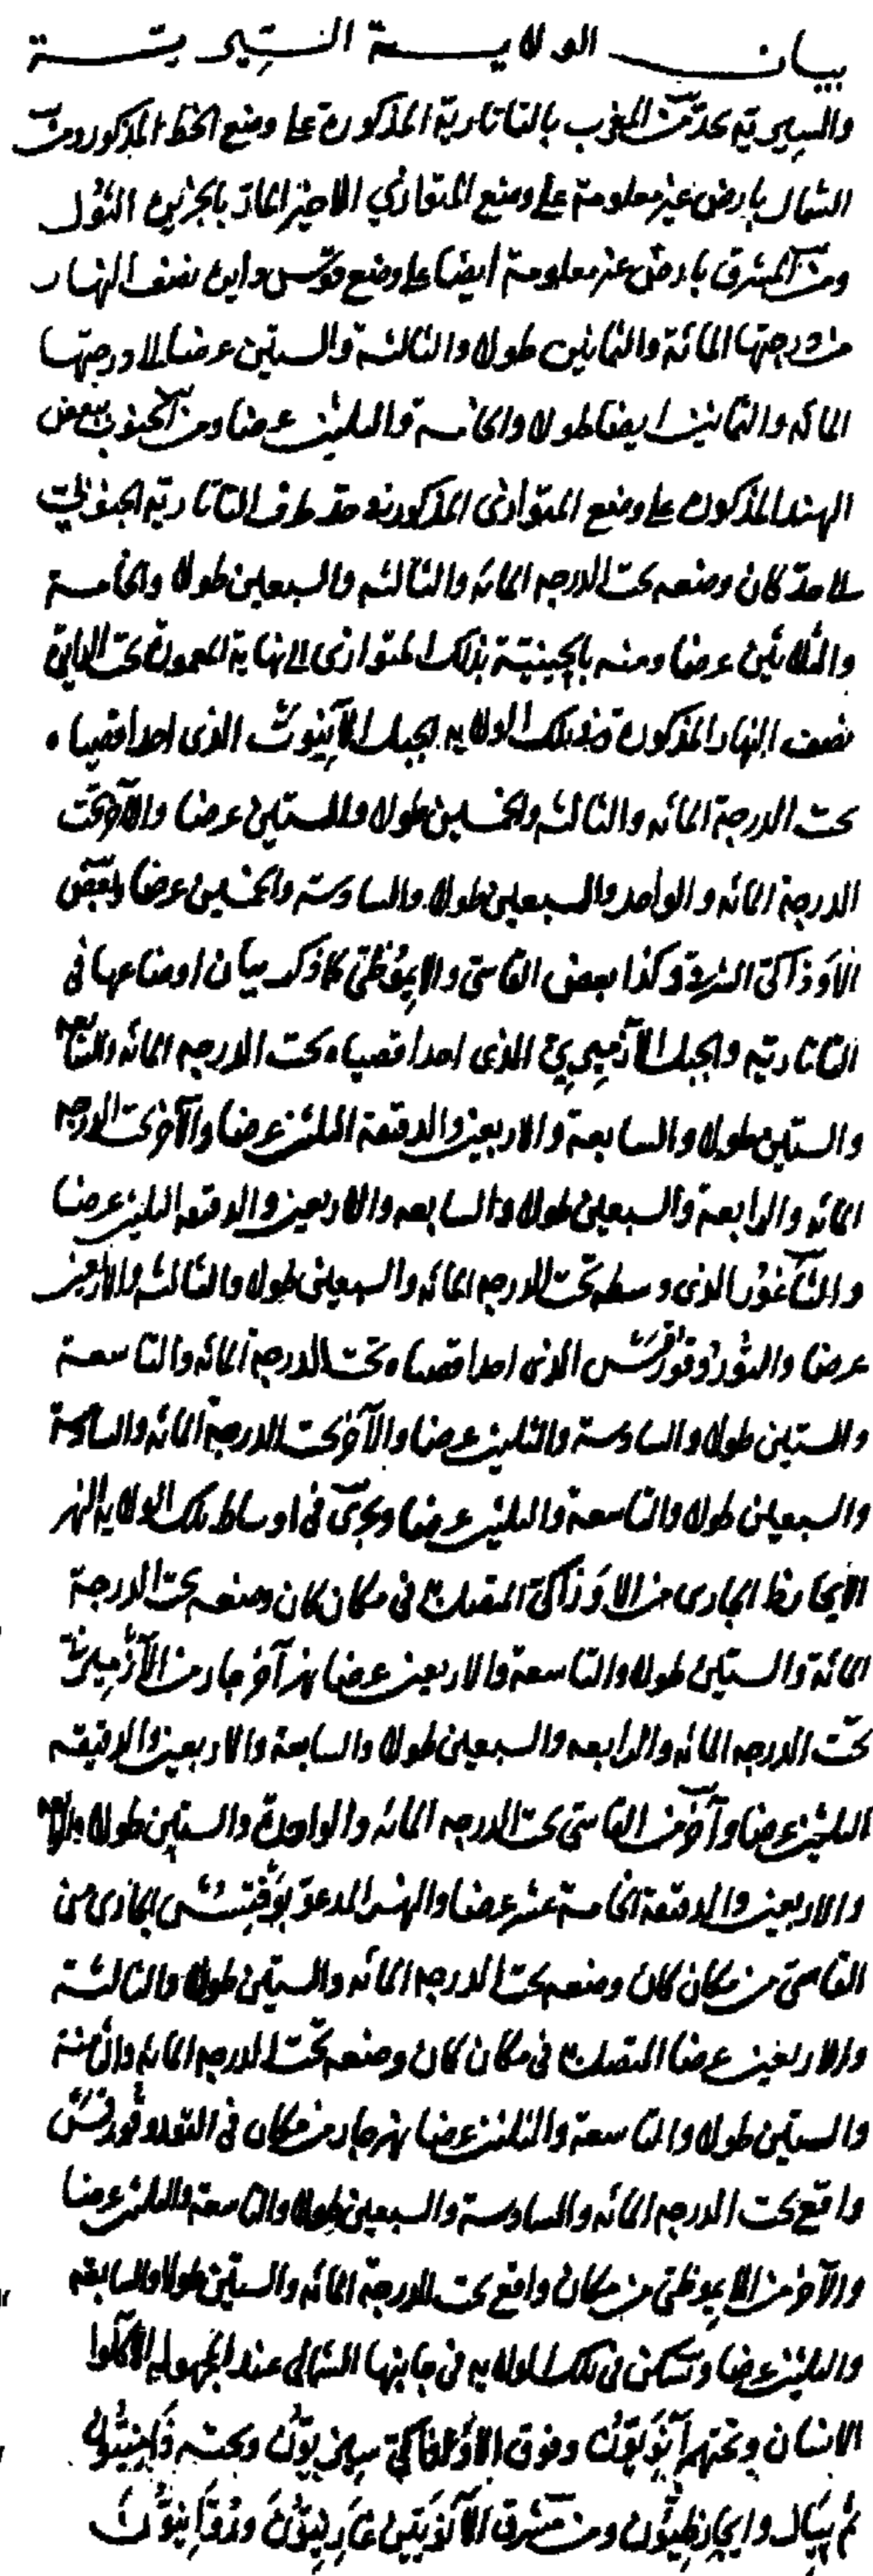 بيان الولاية السيريتة
والسيريقه يحد من المغرب بالتاتارية المذكورة على وضع الخط المذكور ومن
الشمال بارض غير معلومة على وضع المتوازي الاخير المار بالجزيرة التول
ومن المشرق بارض غير معلومة ايضا على وضع قوس دائرة نصف النهار
من درجتها المائة والثمانين طولا والثالثة والستين عرضا الى درجتها
المائه والثمانين ايضا طولا والخامسة والثلثين عرضا ومن الجنوب ببعض
الهند المذكورة على وضع المتوازى المذكور نه حد طرف التاتارية الجنوبي
الى حد كان وضعه تحت الدرجه المائه والثالثه والسبعين طولا والخامسة
والثلاثين عرضا ومنه بالچينيتة بذلك المتوازى الى نهاية المعمورة تحت الدائرة
نصف النهار المذكورة فبتلك الولايه الجبل الذى احد اقصياه
تحت الدرجة المائه والثالثه والخمسين طولا والستين عرضا والآخر تحت
الدرجة المائه والواحد والسبعين طولا والسادسه والخمسين عرضا وبعض
وكذا بعض القاسى كما ذكر بيان اوضاعها فى
التاتاريه والجبل الذى احد اقصياه تحت الدرجه المائه والتاسعه
والستين طولا والسابعة والاربعين والدقيقة الثلثين عرضا والآخر تحت الدرجه
المائه والرابعة والسبعين طولا والسابعه والاربعين والدقيقه الثلثين عرضا
والتاغور الذى وسطه تحت الدرجه المائه والسبعين طولا والثالثه والاربعين
عرضا الذى احد اقصياه تحت الدرجة المائه والتاسعة
والستين طولا والسادسة والثلثين عرضا والآخر تحت الدرجة المائه والسابعة
والسبعين طولا والتاسعة والثلثين عرضا ويجرى فى اوساط تلك الولايه النهر
الجارى من المتصل به فى مكان كان وضعه تحت الدرجة
المائة والستين طولا والتاسعة والاربعين عرضا نهر آخر جار من
تحت الدرجه المائه والرابعه والسبعين طولا والسابعة والاربعين والدقيقه
الثلثين عرضا وآخر من القاسى تحت الدرجه المائه والواحدة والستين طولا
والاربعين والدقيقة الخامسة عشر عرضا والنهر المدعو الجارى من
القاسى من مكان كان وضعه تحت الدرجه المائه والستين طولا والثالثة
والاربعين عرضا المتصل به فى مكان كان وضعه تحت الدرجه المائه والثامنة
والستين طولا والتاسعة والثلثين عرضا نهر جار من مكان فى
واقع تحت الدرجه المائه والسادسة والسبعين طولا والتاسعة والثلثين عرضا
والآخر من من مكان واقع تحت الدرجة المائه والستين طولا والسابعه
والثلثين عرضا وتسكن فى تلك الولايه فى جانبها الشمالى عند المجهوله الاكلوا
الانسان وتحتهم وفوق وتحته
ثم ومن مشرق